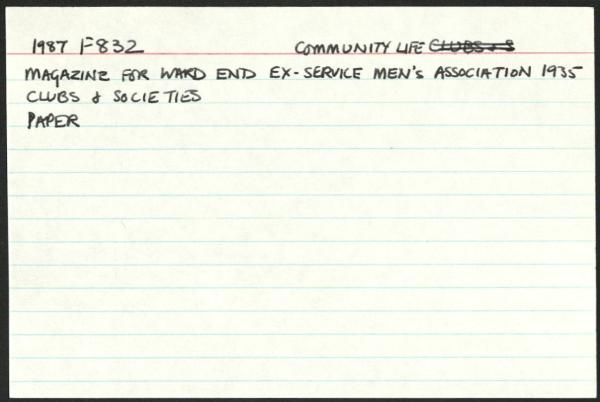 1987 F832 COMMUNITY LIFE CLUBS & S
MAGAZINE FOR WARD END EX-SERVICE MEN'S ASSOCIATION 1935
CLUBS & SOCIETIES
PAPER